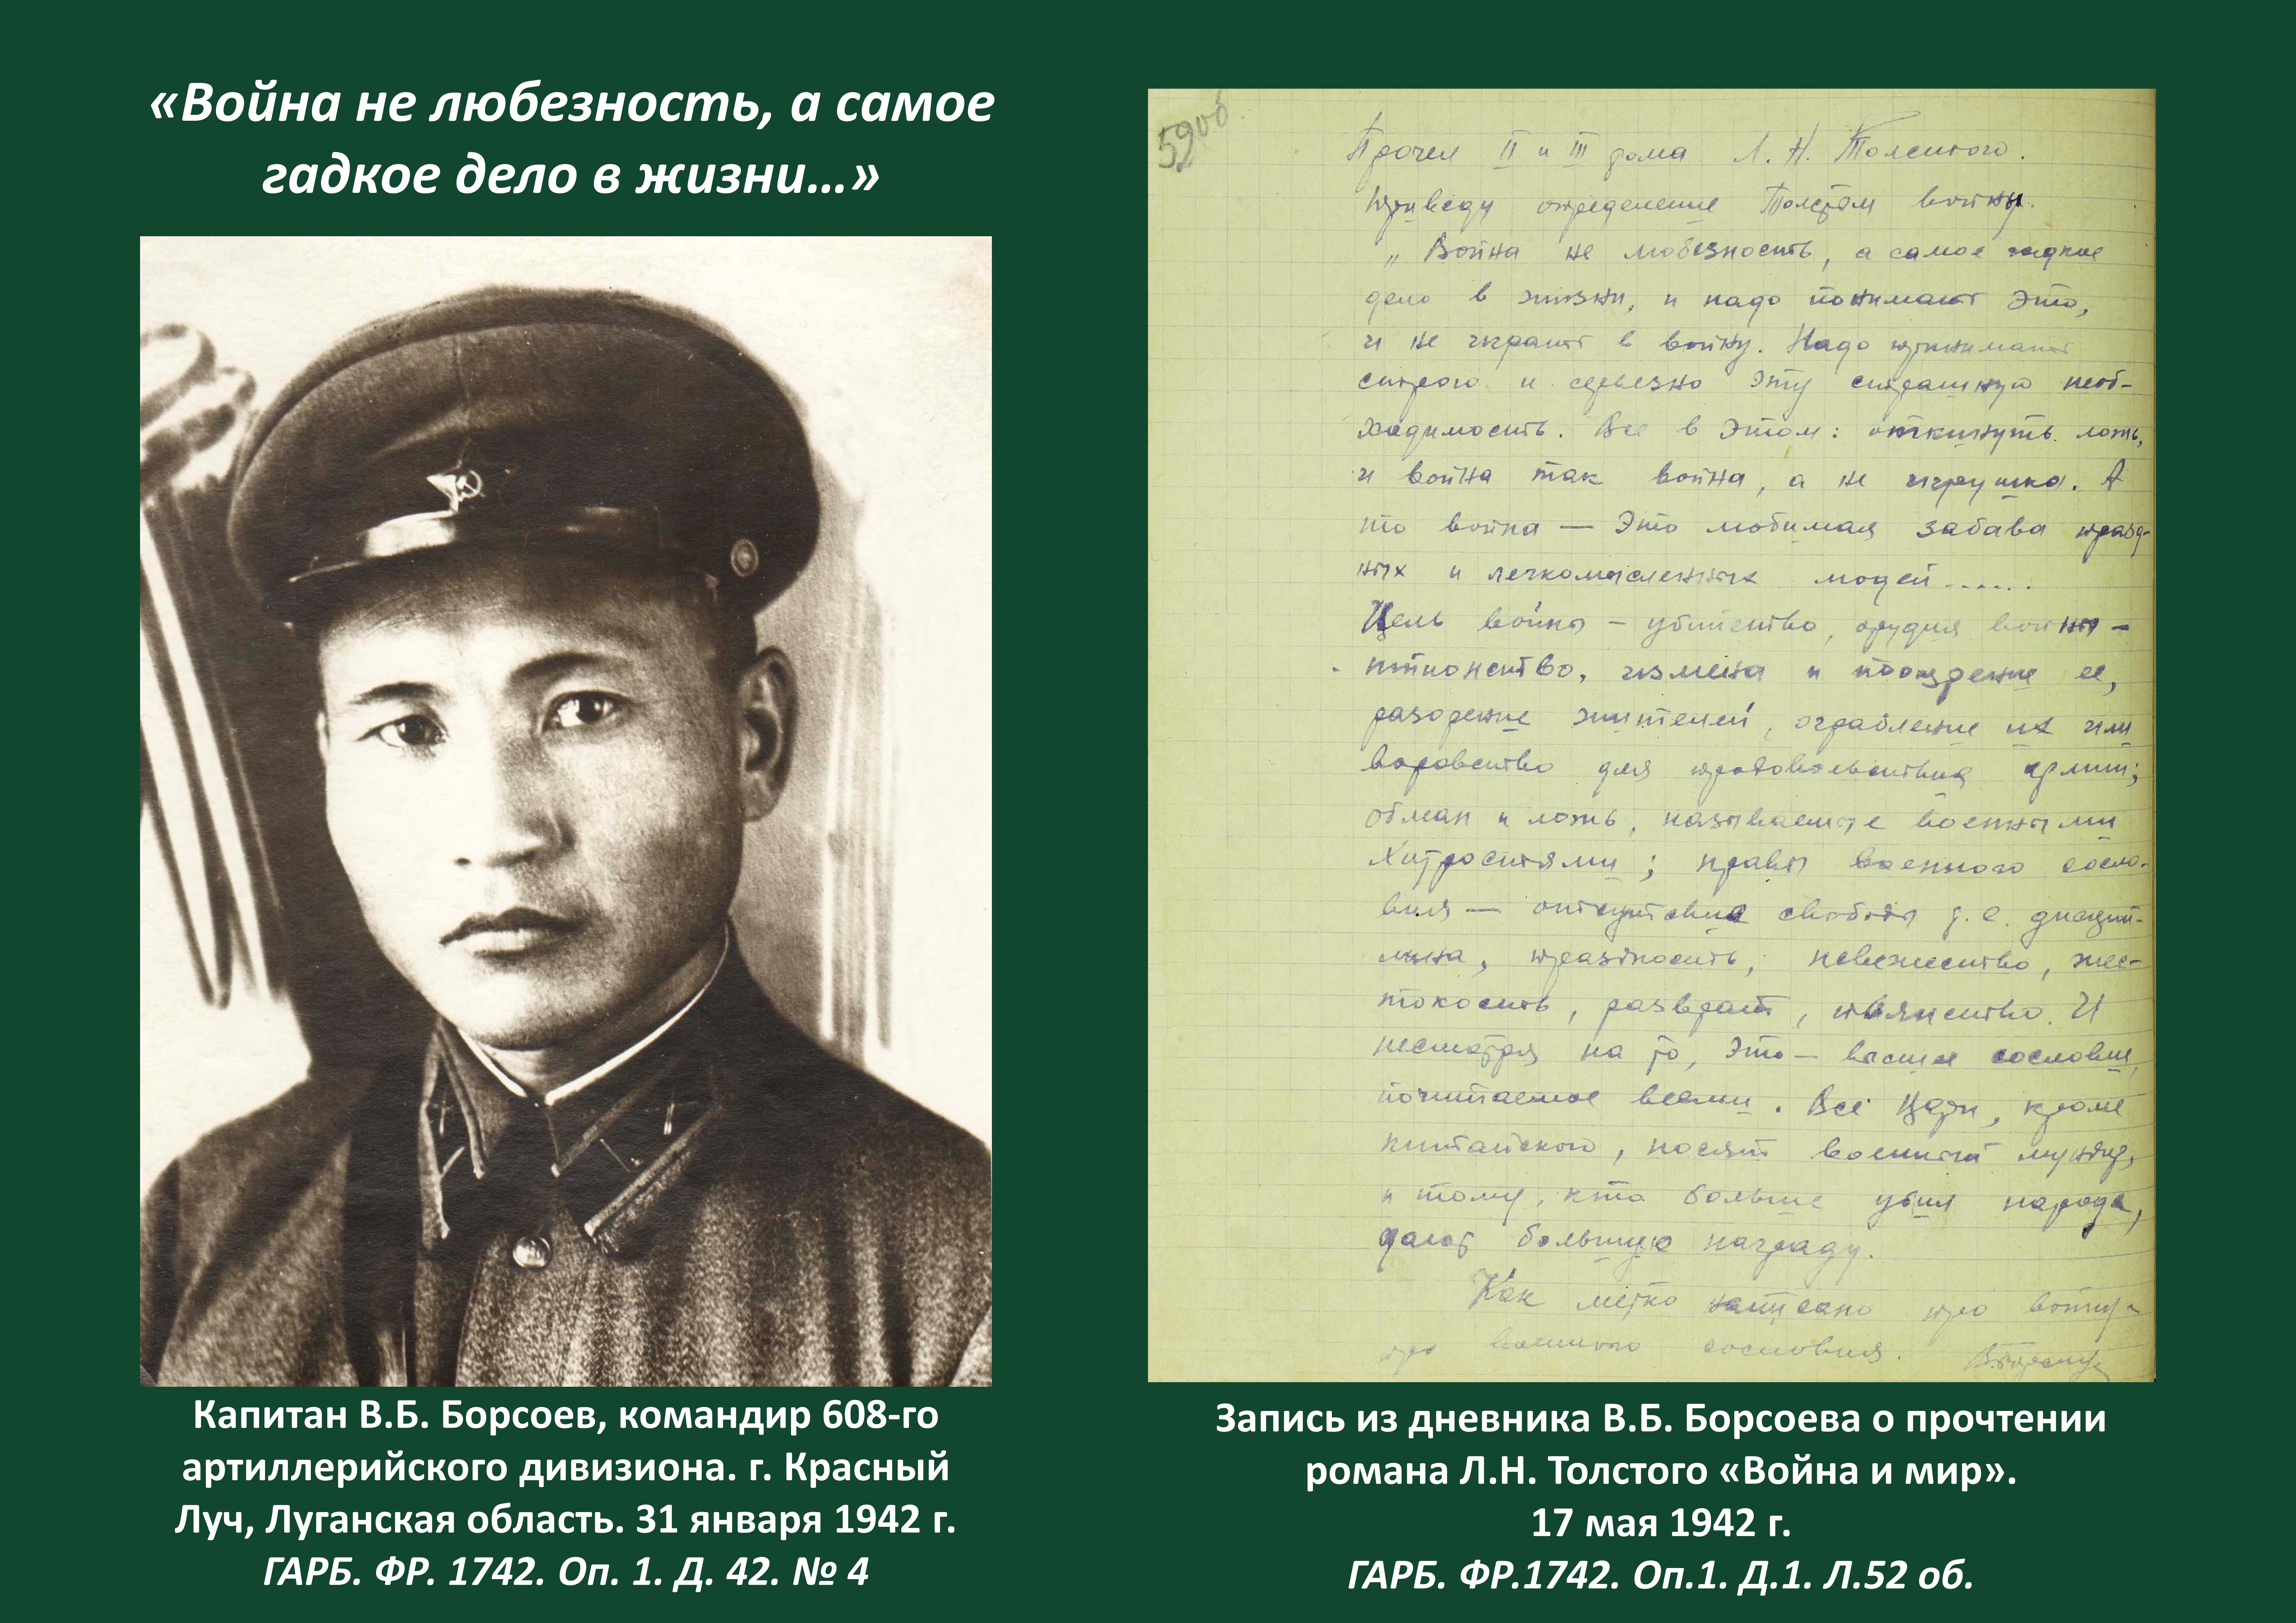 «Война не любезность, а самое
гадкое дело в жизни…»
Капитан В.Б. Борсоев, командир 608-го
артиллерийского дивизиона. г. Красный
Луч, Луганская область. 31 января 1942 г.
ГАРБ. ФР. 1742. Оп. 1. Д. 42. № 4
Прочел II и III тома Л. Н. Толстого.
Приведу определение Толстым войны.
„Война не любезность, а самое гадкое
дело в жизни, и надо понимать это,
и не играть в войну. Надо принимать
строго и серьезно эту страшную необ-
ходимость. Все в этом: откинуть ложь,
и война так война, а не игрушка. А
то война — это любимая забава празд-
ных и легкомысленных людей......
Цель войны – убийство, орудия войны –
шпионство, измена и поощрение ее,
разорение жителей, ограбление их или
воровство для продовольствия армии;
обман и ложь, называемые военными
хитростями; нравы военного сосло-
вия — отсутствие свободы т. е. дисцип-
лина, праздность, невежество, жес-
токость, разврат, пьянство. И
несмотря на то, это — высшее сословие,
почитаемое всеми. Все цари, кроме
китайского, носят военный мундир,
и тому, кто больше убил народа,
дают большую награду.
Как метко написано про войну и
про военного сословия.
Запись из дневника В.Б. Борсоева о прочтении
романа Л.Н. Толстого «Война и мир».
17 мая 1942 г.
ГАРБ. ФР.1742. Оп.1. Д.1. Л.52 об.